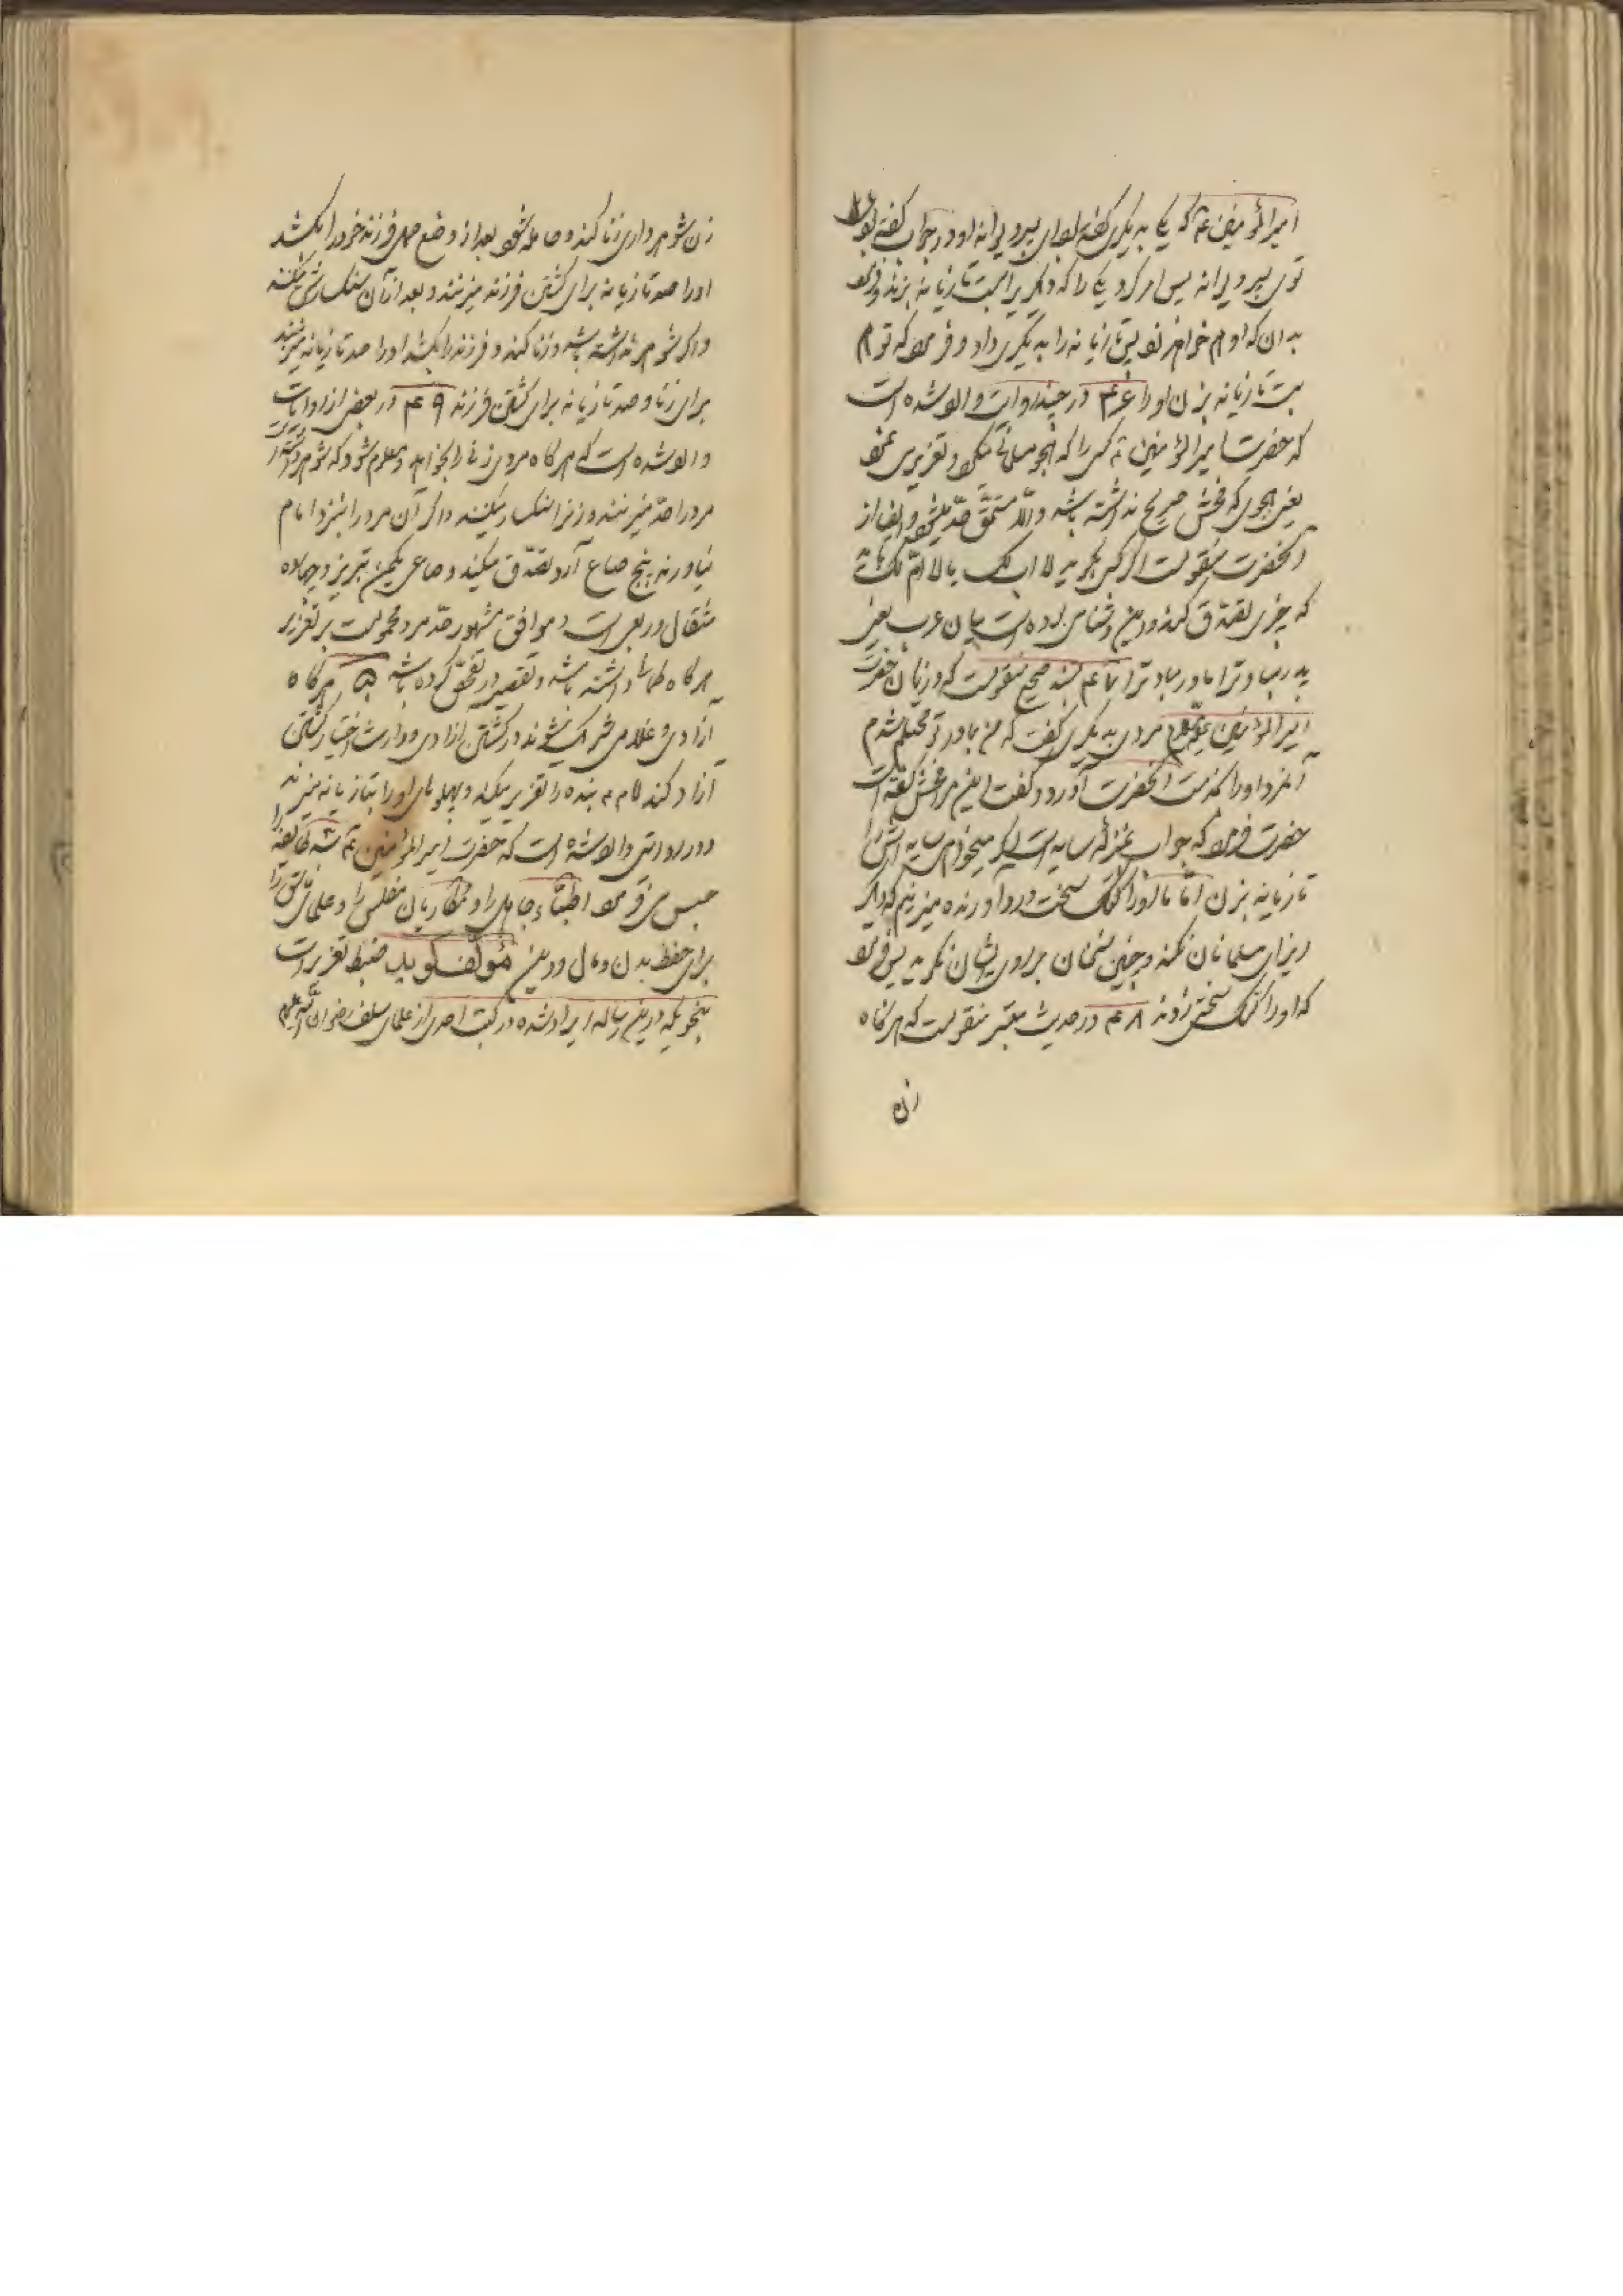 امیرالمؤمنین ع که یکی به دیگری گفته بود ای پسر دیوانه او در جواب گفته بود
توی پسر دیوانه پس امر کرد یکی را که دیگریرا بیست تازیانه بزند و فرمود
بدان که او هم خواهد زد پس تازیانه را به دیگری داد و فرمود که تو هم
بیست تازیانه بزن او را ۴۶ در چند روایت وارد شده است
که حضرت امیرالمؤمنین ع کسی را که هجو مسلمانی میکرد تعزیر می نمود
یعنی هجوی که فحش صریح نداشته باشد و الا مستحق حد میشود و ایضا از
آنحضرت منقولست اگر کسی بگوید لا اب لک یا لا ام لک
که چیزی تصدق کند و این دشنامی بوده است میان عرب یعنی
پدر مباد ترا مادر مباد ترا ۴۷ بسند صحیح منقولست که در زمان حضرت
امیرالمؤمنین مردی به دیگری گفت که من بمادر تو محتلم شدم
آنمرد او را بخدمت آنحضرت آورد و گفت این مرا فحش گفته است
حضرت فرمود که خواب بمنزله سایه است اگر میخواهی سایه اش را
تازیانه بزن اما ما او را کتک سخت درد آورنده میزنیم که دیگر
ایذای مسلمانان نکند و چنین سخنان بر روی ایشان نگوید پس فرمود
که او را کتک سختی زدند ۴۸ در حدیث معتبر منقولست که هرگاه
زن
زن شوهرداری زنا کند و حامله شود بعد از وضع حمل فرزند خود را بکشد
او را صد تازیانه برای کشتن فرزند میزنند و بعد از آن سنگسارش میکنند
و اگر شوهر نداشته باشد و زنا کند و فرزند را بکشد او را صد تازیانه میزنند
برای زنا و صد تازیانه برای کشتن فرزند ۴۹ در بعضی از روایات
وارد شده است که هرگاه مردی زنی را بخواهد و معلوم شود که شوهر داشته
مرد را حد میزنند و زنرا سنگسار میکنند و اگر آن مرد را بنزد امام
نیاورند پنج صاع آرد تصدق میکند و صاعی یکمن تبریز و چهارده
مثقال و ربعی است و موافق مشهور حد مرد محمولست بر تعزیر
هرگاه داشته باشد و تقصیر در تفحص کرده باشد ۵۰ هرگاه
آزادی و غلامی شریک شوند در کشتن آزادی و وارث اختیار کشتن
آزاد کند امام بنده را تعزیر میکند و پهلوهای او را بتازیانه میزند
و در روایتی وارد شده است که حضرت امیرالمؤمنین ع سه طایفه را
حبس می فرمود اطباء جاهل را و مکاریان مفلس را و علمای فاسق را
برای حفظ بدن و مال و دین مؤلف گوید ضبط تعزیرات
بنحویکه درین رساله ایراد شده در کتب احدی از علمای سلف رضوان الله علیهم